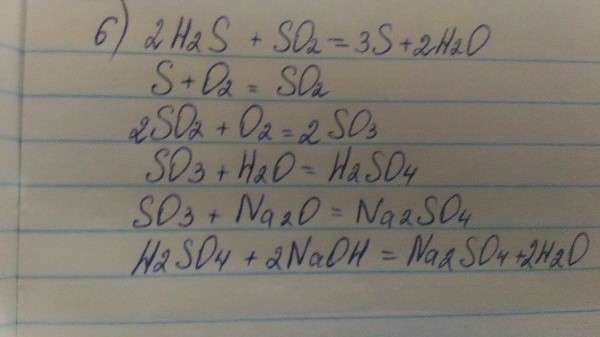 б) 2H2S + SO2 = 3S + 2H2O
S + O2 = SO2
2SO2 + O2 = 2SO3
SO3 + H2O = H2SO4
SO3 + Na2O = Na2SO4
H2SO4 + 2NaOH = Na2SO4 + 2H2O